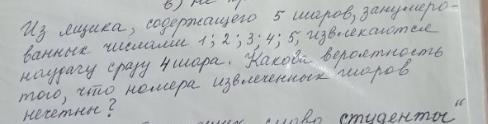 б) не
Из ящика, содержащего 5 шаров, занумеро-
ванных числами 1; 2; 3; 4; 5, извлекаются
наудачу сразу 4 шара. Какова вероятность
того, что номера извлеченных шаров
нечетны?
слово студенты"